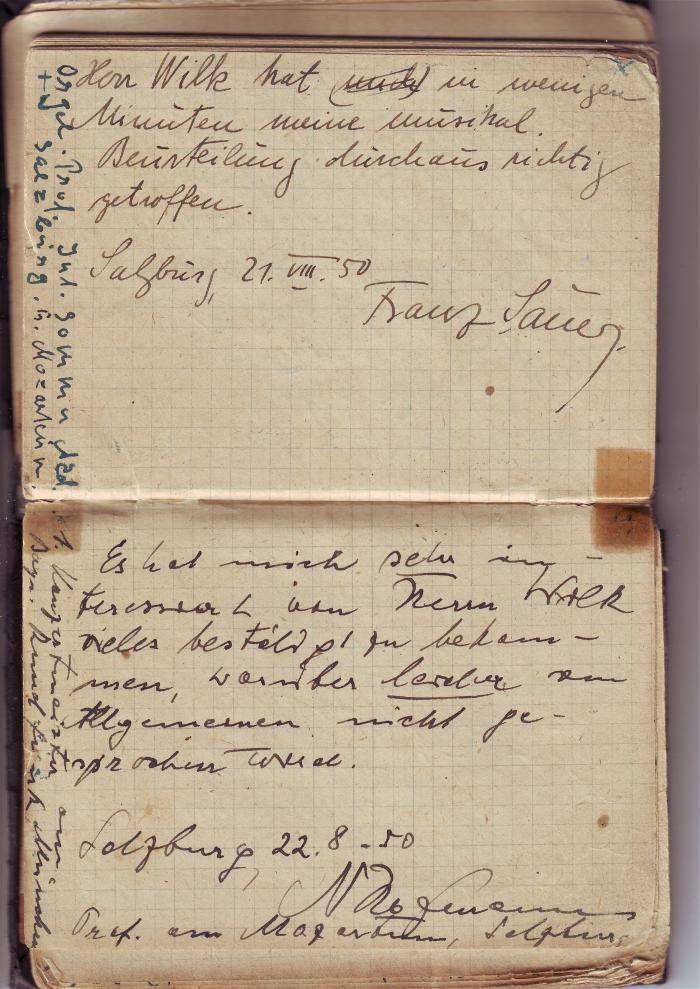 Herr Wilk hat (mich) in wenigen
Minuten meine musikal.
Beurteilung durchaus richtig
getroffen.
Salzburg, 21. VIII. 50
Franz Sauer
Orgel. Prof.
+ Salzburg. a. Mozarteum.
Es hat mich sehr in-
teressiert von Herrn Wilk
vieles bestätigt zu bekom-
men, worüber leider im
Allgemeinen nicht ge-
sprochen wird.
Salzburg, 22. 8. 50
Prof. am Mozarteum, Salzburg
1. Konzertmeister am
Bayr. Rundfunk München